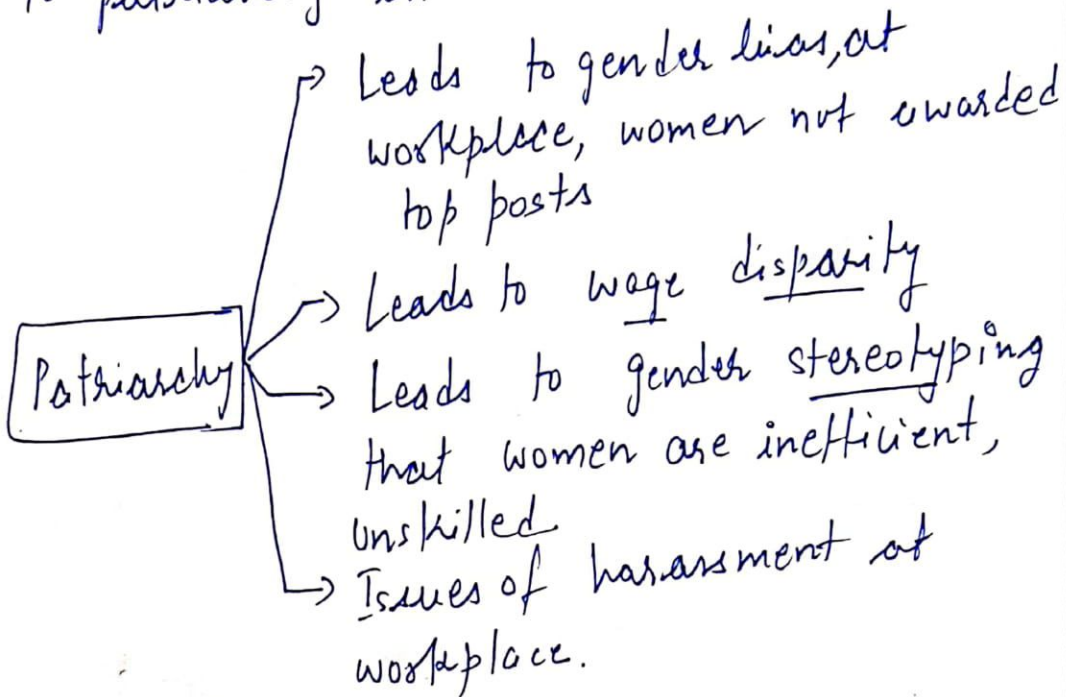 Leads to gender bias, at
workplace, women not awarded
top posts
Leads to wage disparity
Patriarchy
Leads to gender stereotyping
that women are inefficient,
unskilled
Issues of harassment at
workplace.